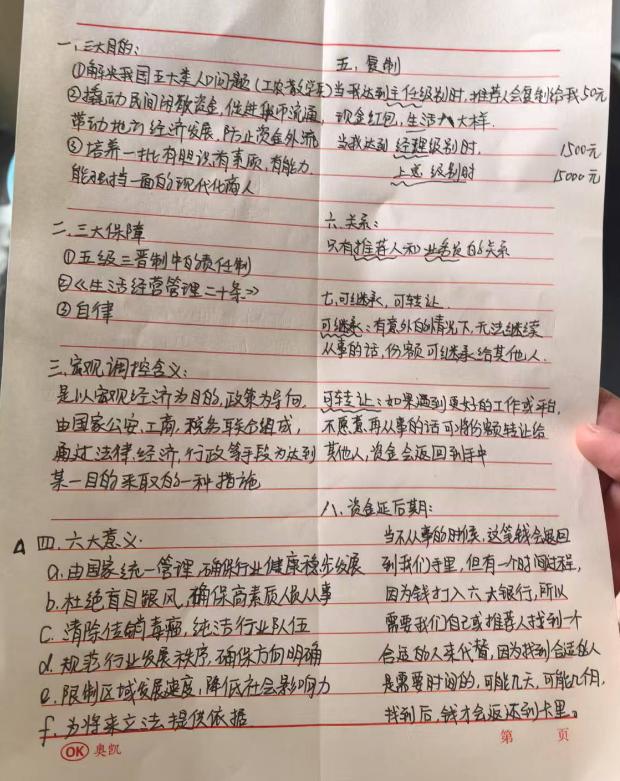 一、三大目的：
①解决我国五大类人口问题（工农商学兵）
②撬动民间闲散资金，促进货币流通，
带动地方经济发展，防止资金外流
③培养一批有胆识有素质，有能力
能独挡一面的现代化商人
二、三大保障
①五级三晋制中的责任制
②《生活经营管理二十条》
③自律
三、宏观调控含义：
是以宏观经济为目的，政策为导向，
由国家公安，工商，税务联合组成，
通过法律，经济，行政等手段为达到
某一目的采取的一种措施
四、六大意义：
a.由国家统一管理，确保行业健康稳步发展
b.杜绝盲目跟风，确保高素质人从事
c.清除传销毒瘤，纯洁行业队伍
d.规范行业发展秩序，确保方向明确
e.限制区域发展速度，降低社会影响力
f.为将来立法提供依据
OK 奥凯
五、复制
当我达到主任级别时，推荐人会复制给我50元
现金红包，生活大大样.
当我达到经理级别时， 1500元
上总级别时 15000元
六、关系：
只有推荐人和业务员的关系
七、可继承，可转让
可继承：有意外的情况下，无法继续
从事的话，份额可继承给其他人.
可转让：如果遇到更好的工作或平台，
不愿意再从事的话可将份额转让给
其他人，资金会返回到手中
八、资金延后期：
当不从事的时候，这笔钱会退回
到我们手里，但有一个时间过程，
因为钱打入六大银行，所以
需要我们自己或推荐人找到一个
合适的人来代替，因为找到合适的人
是需要时间的，可能几天，可能几个月，
找到后，钱才会返还到卡里。
第 页